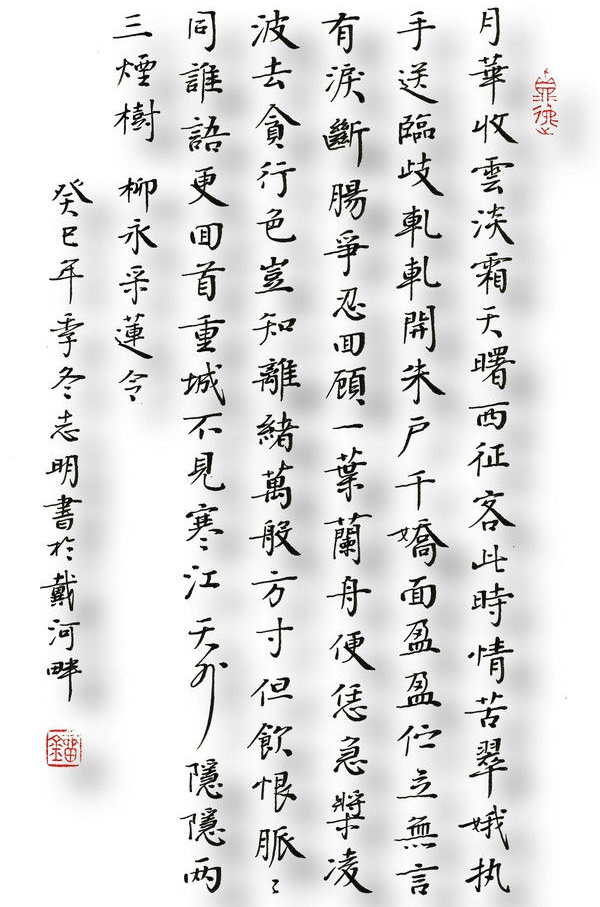 月華收雲淡霜天曙西征客此時情苦翠娥执
手送臨歧軋軋開朱戶千嬌面盈盈伫立無言
有淚斷腸爭忍回顧一葉蘭舟便恁急槳凌
波去貪行色豈知離緒萬般方寸但飲恨脈〻
同誰語更回首重城不見寒江天外隱隱两
三煙樹 柳永采蓮令
癸巳年季冬志明書於戴河畔